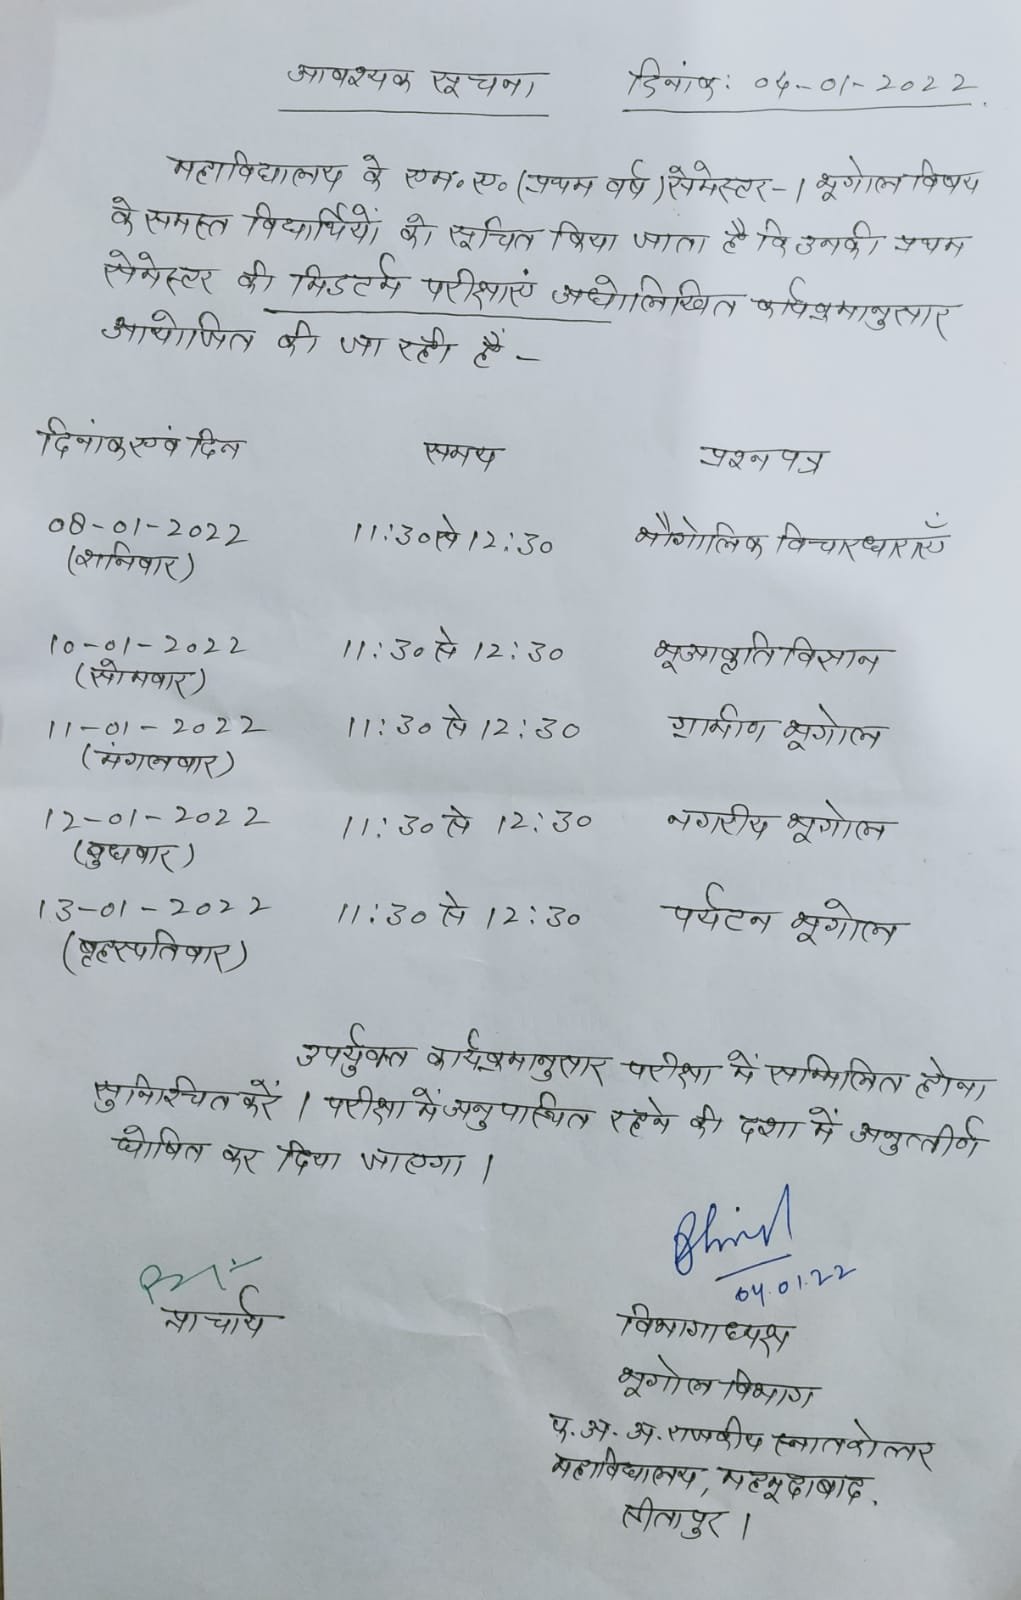 आवश्यक सूचना दिनांक: 04-01-2022.
महाविद्यालय के एम॰ ए॰ (प्रथम वर्ष) सेमेस्टर-1 भूगोल विषय
के समस्त विद्यार्थियों को सूचित किया जाता है कि उनकी प्रथम
सेमेस्टर की मिडटर्म परीक्षाएं अधोलिखित कार्यक्रमानुसार
आयोजित की जा रही हैं -
दिनांक एवं दिन समय प्रश्न पत्र
08-01-2022 11:30 से 12:30 भौगोलिक विचारधाराएँ
(शनिवार)
10-01-2022 11:30 से 12:30 भूआकृति विज्ञान
(सोमवार)
11-01-2022 11:30 से 12:30 ग्रामीण भूगोल
(मंगलवार)
12-01-2022 11:30 से 12:30 नगरीय भूगोल
(बुधवार)
13-01-2022 11:30 से 12:30 पर्यटन भूगोल
(बृहस्पतिवार)
उपर्युक्त कार्यक्रमानुसार परीक्षा में सम्मिलित होना
सुनिश्चित करें । परीक्षा में अनुपस्थित रहने की दशा में अनुत्तीर्ण
घोषित कर दिया जाएगा ।
04.01.22
प्राचार्य
विभागाध्यक्ष
भूगोल विभाग
फ. अ. अ. राजकीय स्नातकोत्तर
महाविद्यालय, महमूदाबाद,
सीतापुर ।